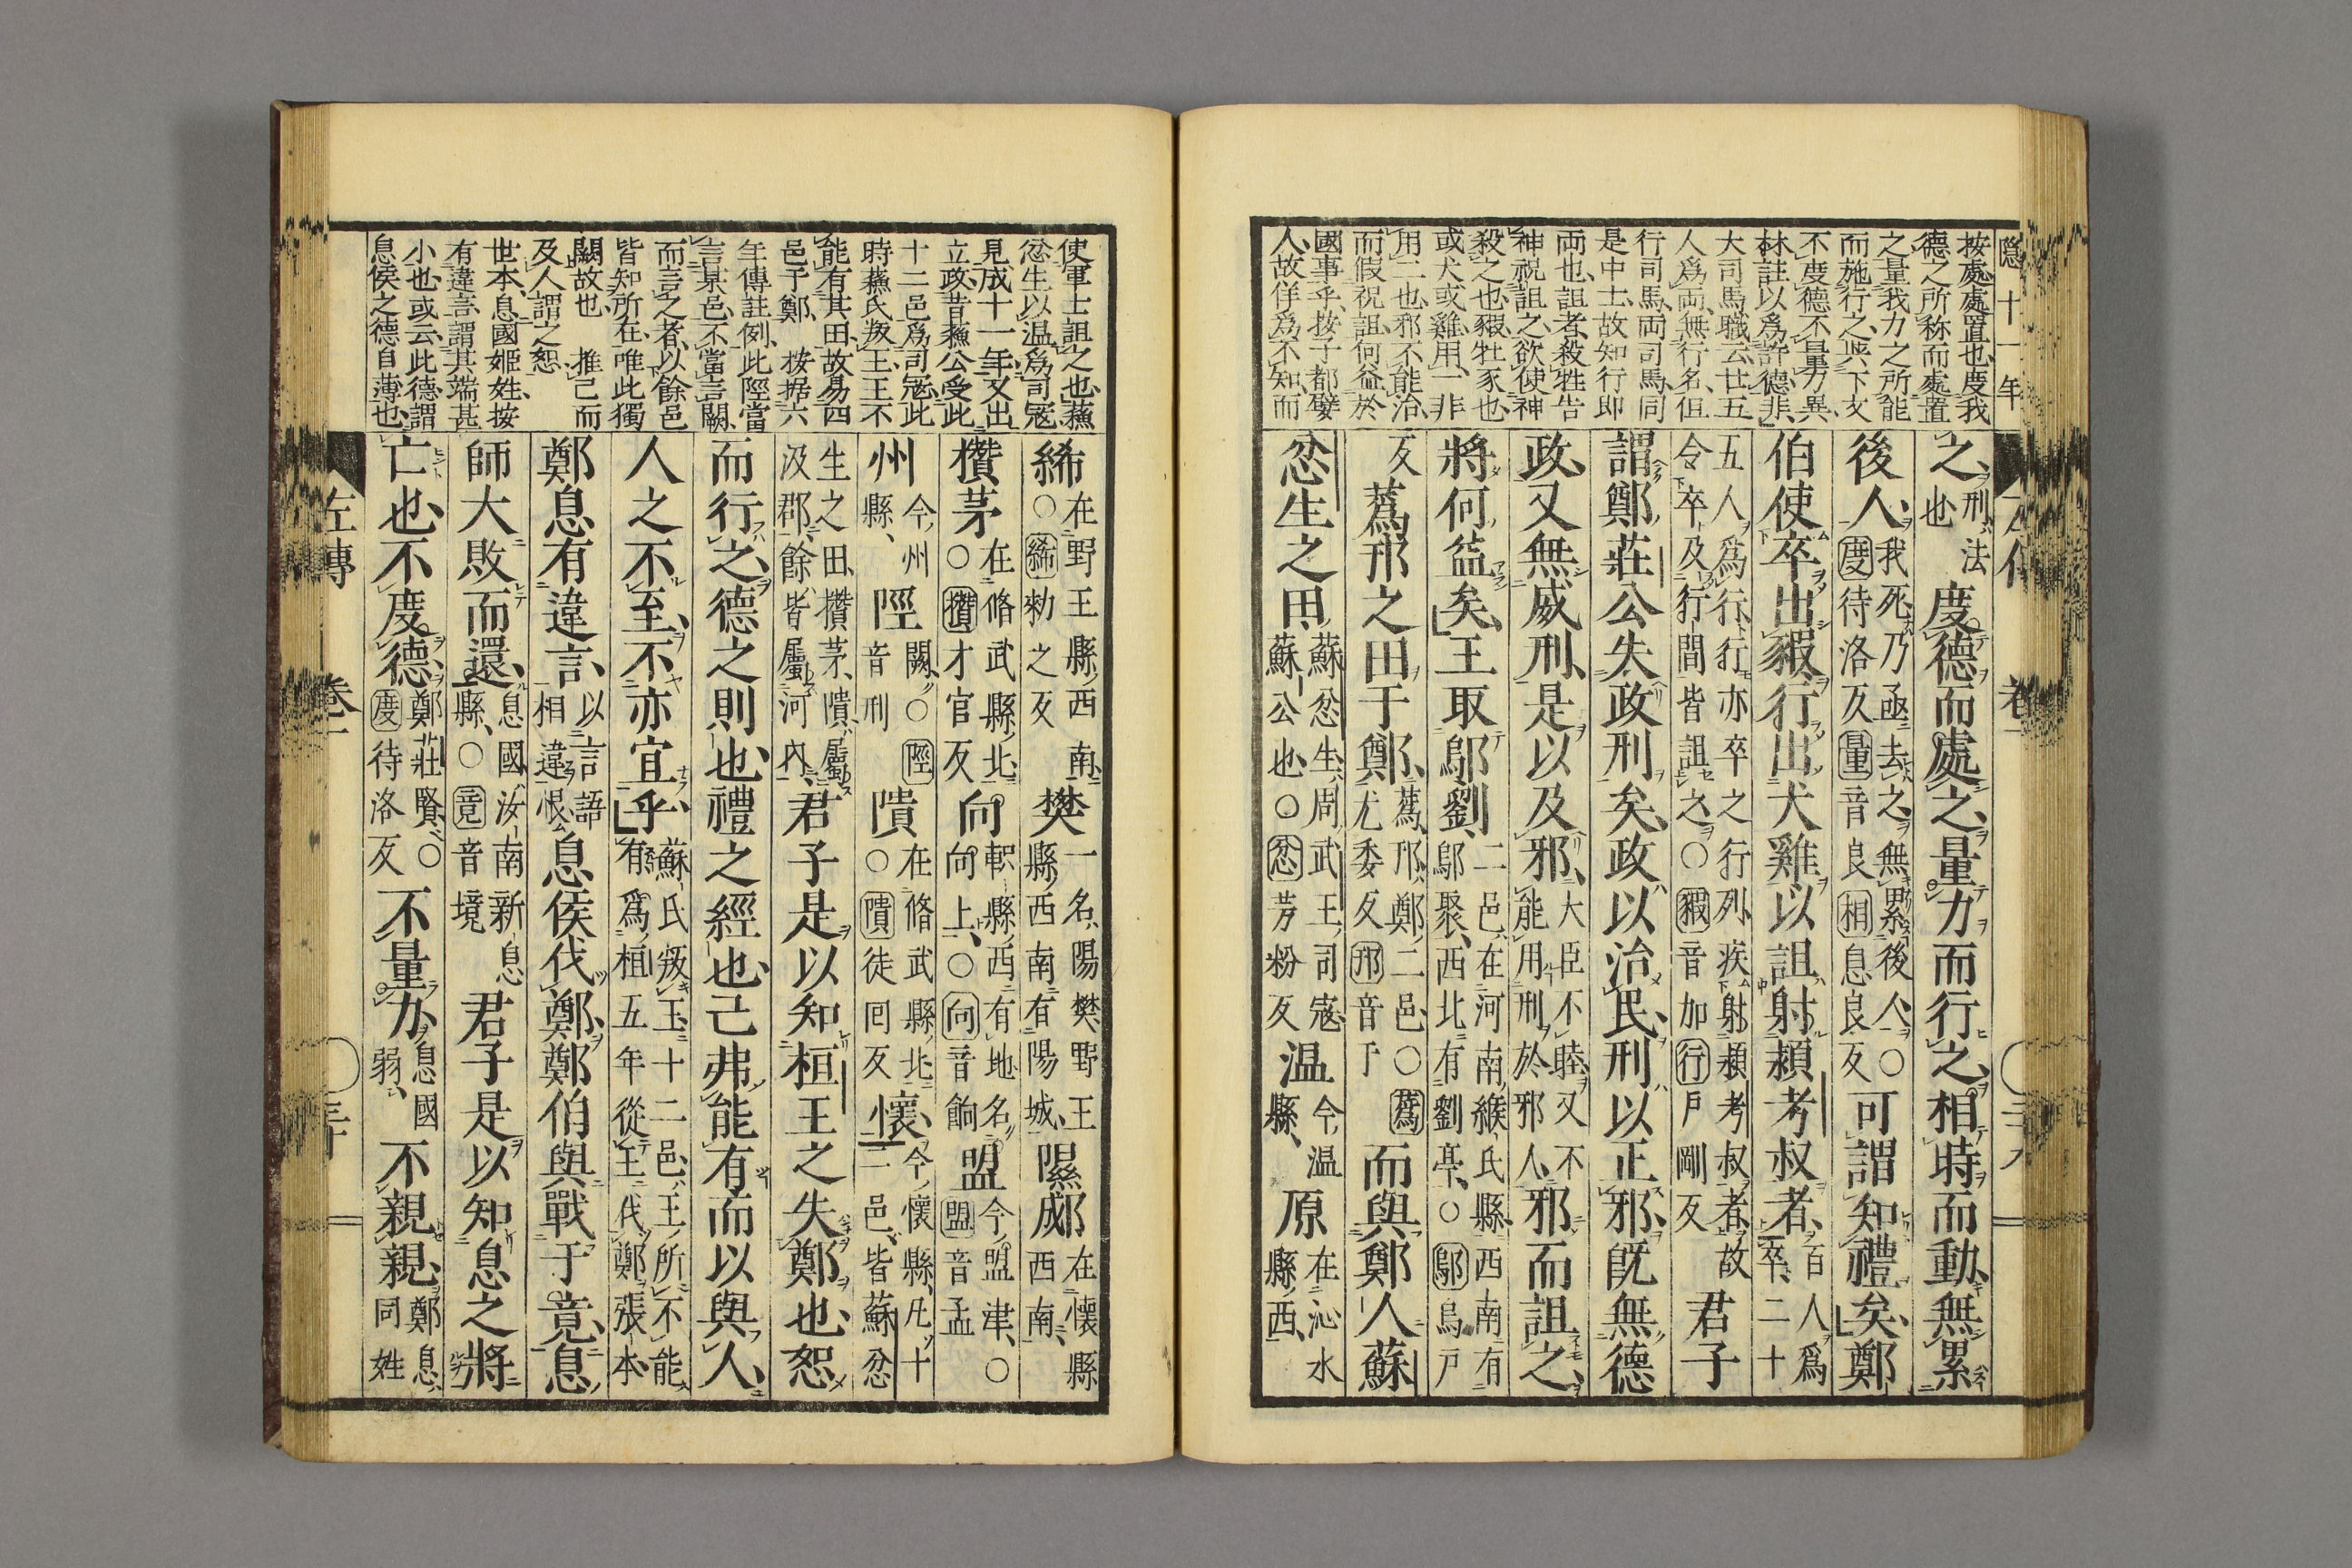 隱十一年
按處處置也度我
德之所称而處置
之量我力之所能
而施行之與下文
不度德不量力異
林註以爲許德非
大司馬職云廿五
人爲兩無行名但
行司馬兩司馬同
是中士故知行即
兩也詛者殺牲告
神祝詛之欲使神
殺之也豭牡豕也
或犬或雞用一非
用二也邪不能治
而假祝詛何益於
國事乎按子都嬖
人故佯爲不知而
之刑法也度德而處之量力而行之相時而動無累
後人我死乃亟去之無累後人○度待洛反量音良相息良反可謂知禮矣鄭
伯使卒出豭行出犬雞以詛射潁考叔者百人爲卒二十
五人爲行行亦卒之行列疾射潁考叔者故令卒及行間皆詛之○豭音加行戶剛反君子
謂鄭莊公失政刑矣政以治民刑以正邪既無德
政又無威刑是以及邪大臣不睦又不能用刑於邪人邪而詛之
將何益矣王取鄔劉二邑在河南緱氏縣西南有鄔聚西北有劉亭○鄔烏戶
反蒍邘之田于鄭蒍邘鄭二邑○蒍尤委反邘音于而與鄭人蘇
忿生之田蘇忿生周武王司寇蘇公也○忿芳粉反温今温縣原在沁水縣西
左傳 卷一
使軍士詛之也蘇
忿生以温爲司寇
見成十一年又出
立政昔蘇公受此
十二邑爲司寇此
時蘇氏叛王王不
能有其田故易四
邑于鄭 按据六
年傳註例此陘當
言某邑不當言闕
而言之者以餘邑
皆知所在唯此獨
闕故也 推己而
及人謂之恕
世本息國姬姓按
有違言謂其端甚
小也或云此德謂
息侯之德自薄也
絺在野王縣西南○絺勑之反樊一名陽樊野王縣西南有陽城隰郕在懷縣西南
欑茅在脩武縣北○欑才官反向軹縣西有地名向上○向音餉盟今盟津○盟音孟
州今州縣陘闕○陘音刑隤在脩武縣北○隤徒回反懷今懷縣凡十二邑皆蘇忿
生之田欑茅隤屬汲郡餘皆屬河內君子是以知桓王之失鄭也恕
而行之德之則也禮之經也己弗能有而以與人
人之不至不亦宜乎蘇氏叛王十二邑王所不能有爲桓五年從王伐鄭張本
鄭息有違言以言語相違恨息侯伐鄭鄭伯與戰于竟息
師大敗而還息國汝南新息縣○竟音境君子是以知息之將
亡也不度德鄭莊賢○度待洛反不量力息國弱不親親鄭息同姓
左傳 卷一